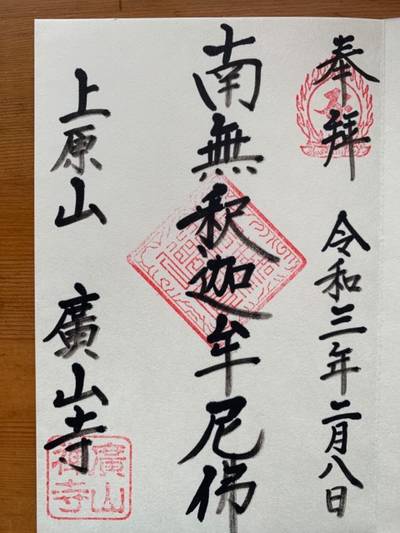 奉拝 令和三年二月八日
南無釈迦牟尼佛
上原山 廣山寺
廣山禅寺